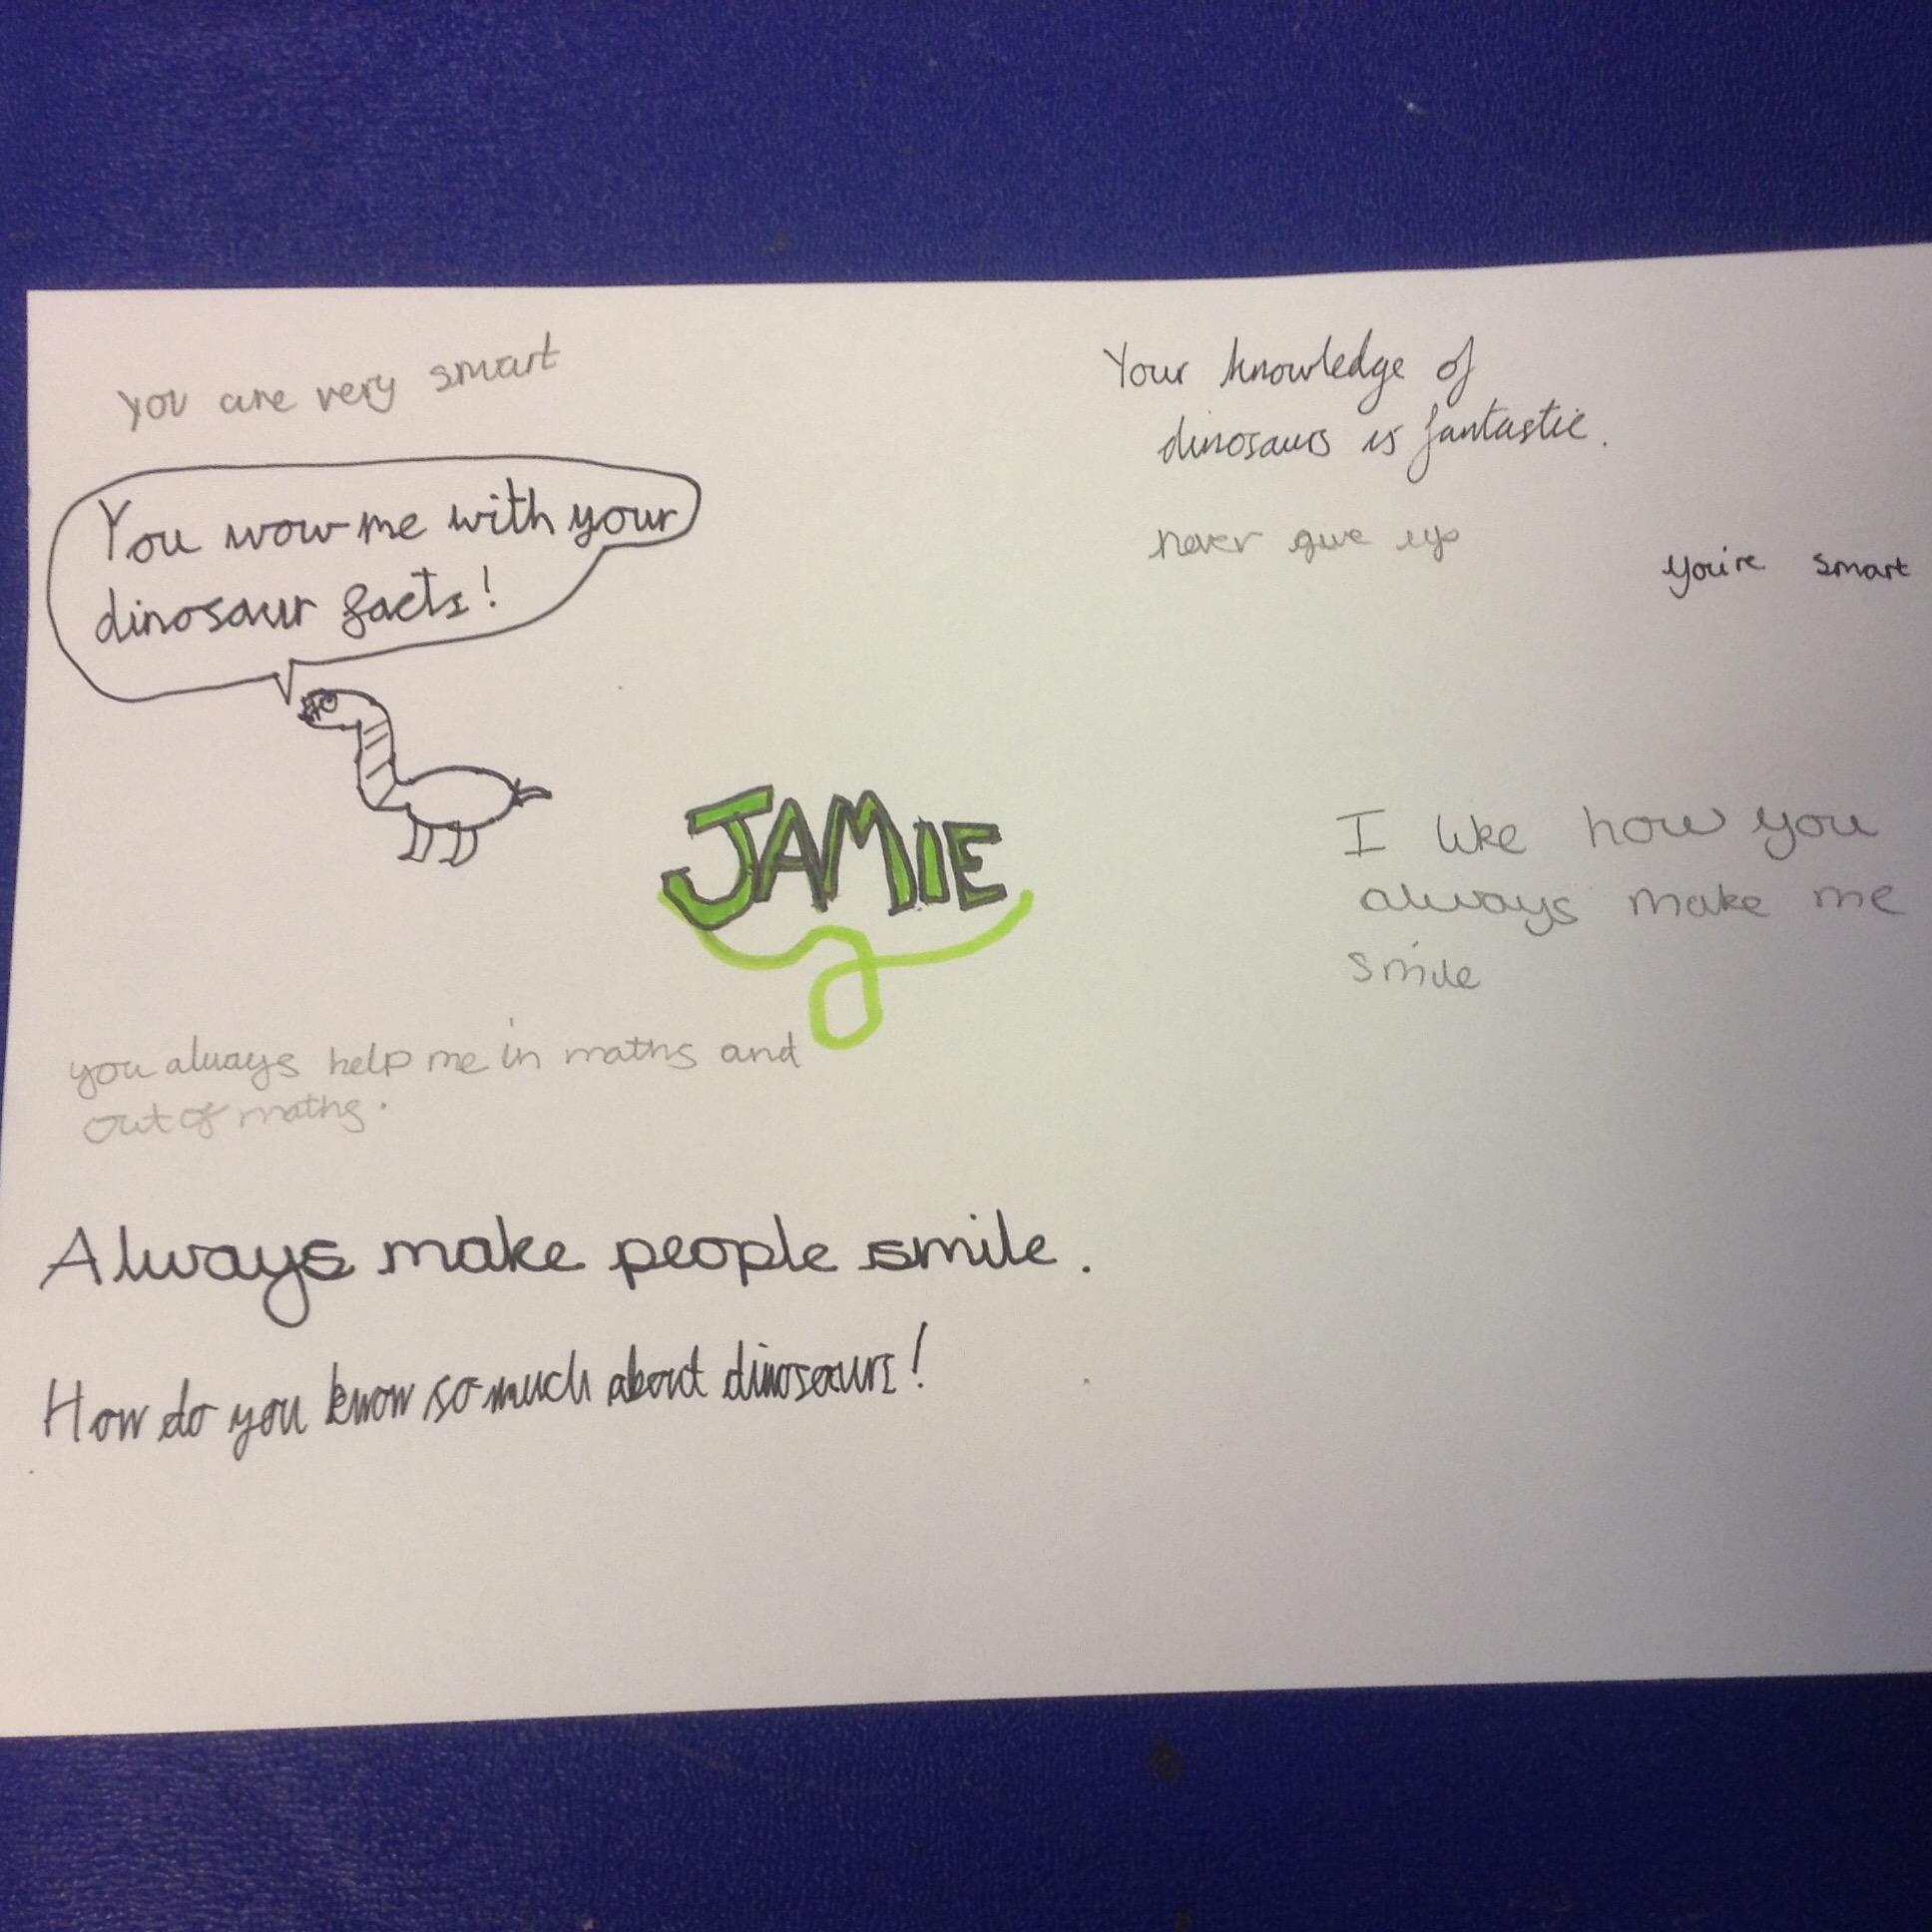 you are very smart
You wow me with your
dinosaur facts!
Your knowledge of
dinosaurs is fantastic.
never give up
you're smart
JAMIE
I like how you
always make me
smile
you always help me in maths and
out of maths.
Always make people smile.
How do you know so much about dinosaurs!